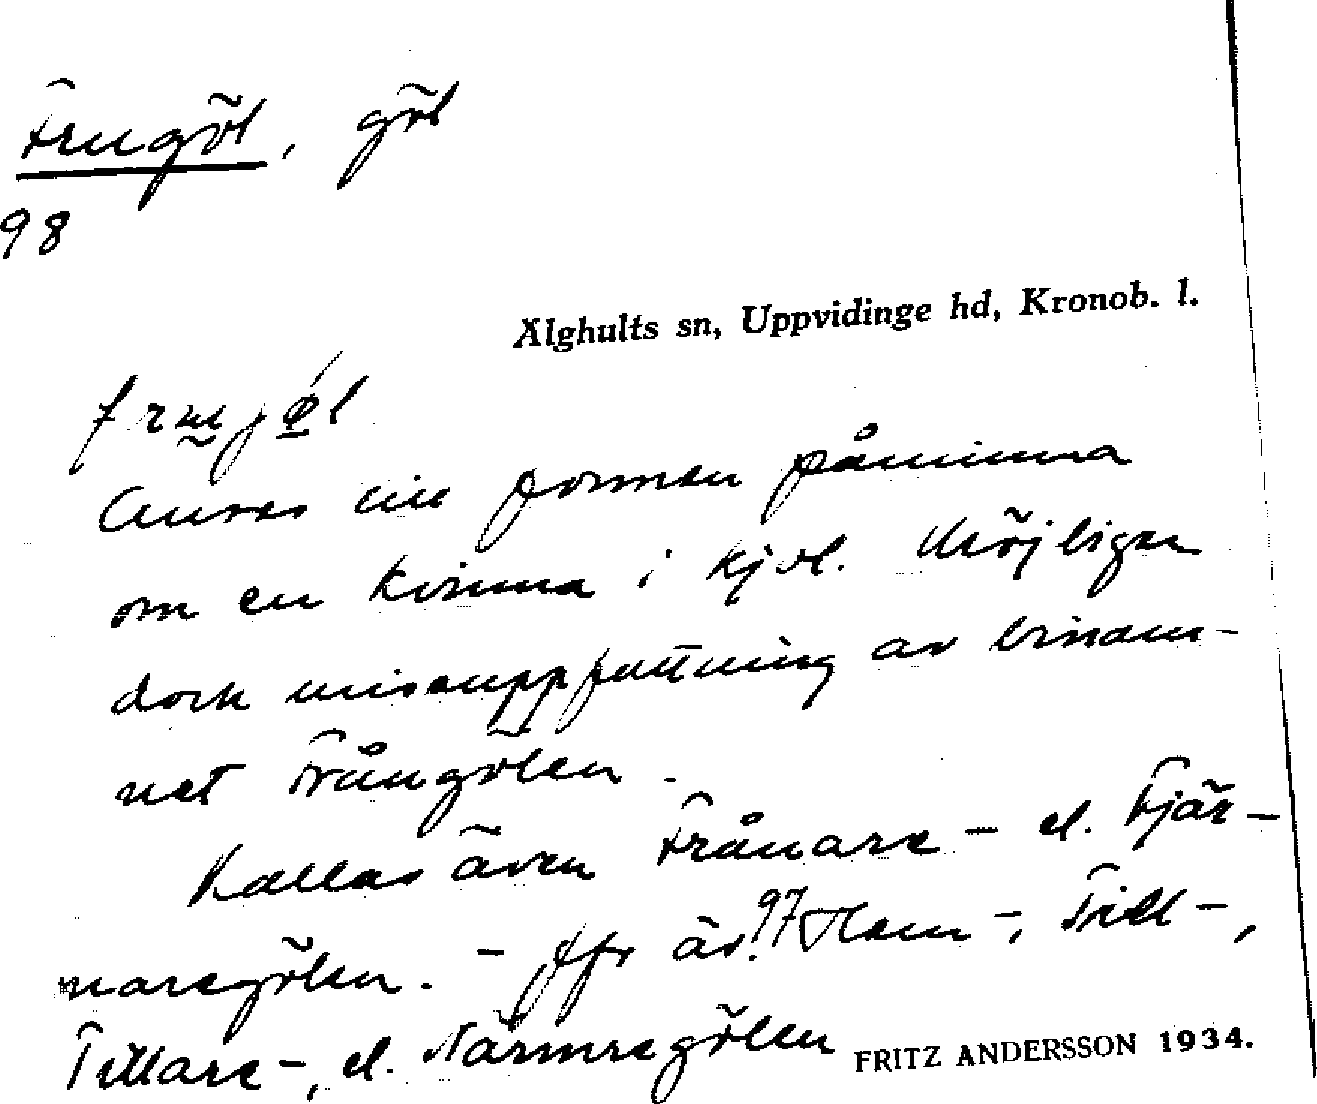 Frugöl, göl
98
Älghults sn, Uppvidinge hd, Kronob. l.
Anses till formen påminna
om en kvinna i kjol. Möjligen
dock missuppfattning av binam-
net Frångölen.
Kallas även Frånare- el. Fjär-
maregölen. - Jfr äv. 97 Hem-, Till-,
Tillare-, el. Närmregölen
FRITZ ANDERSSON 1934.